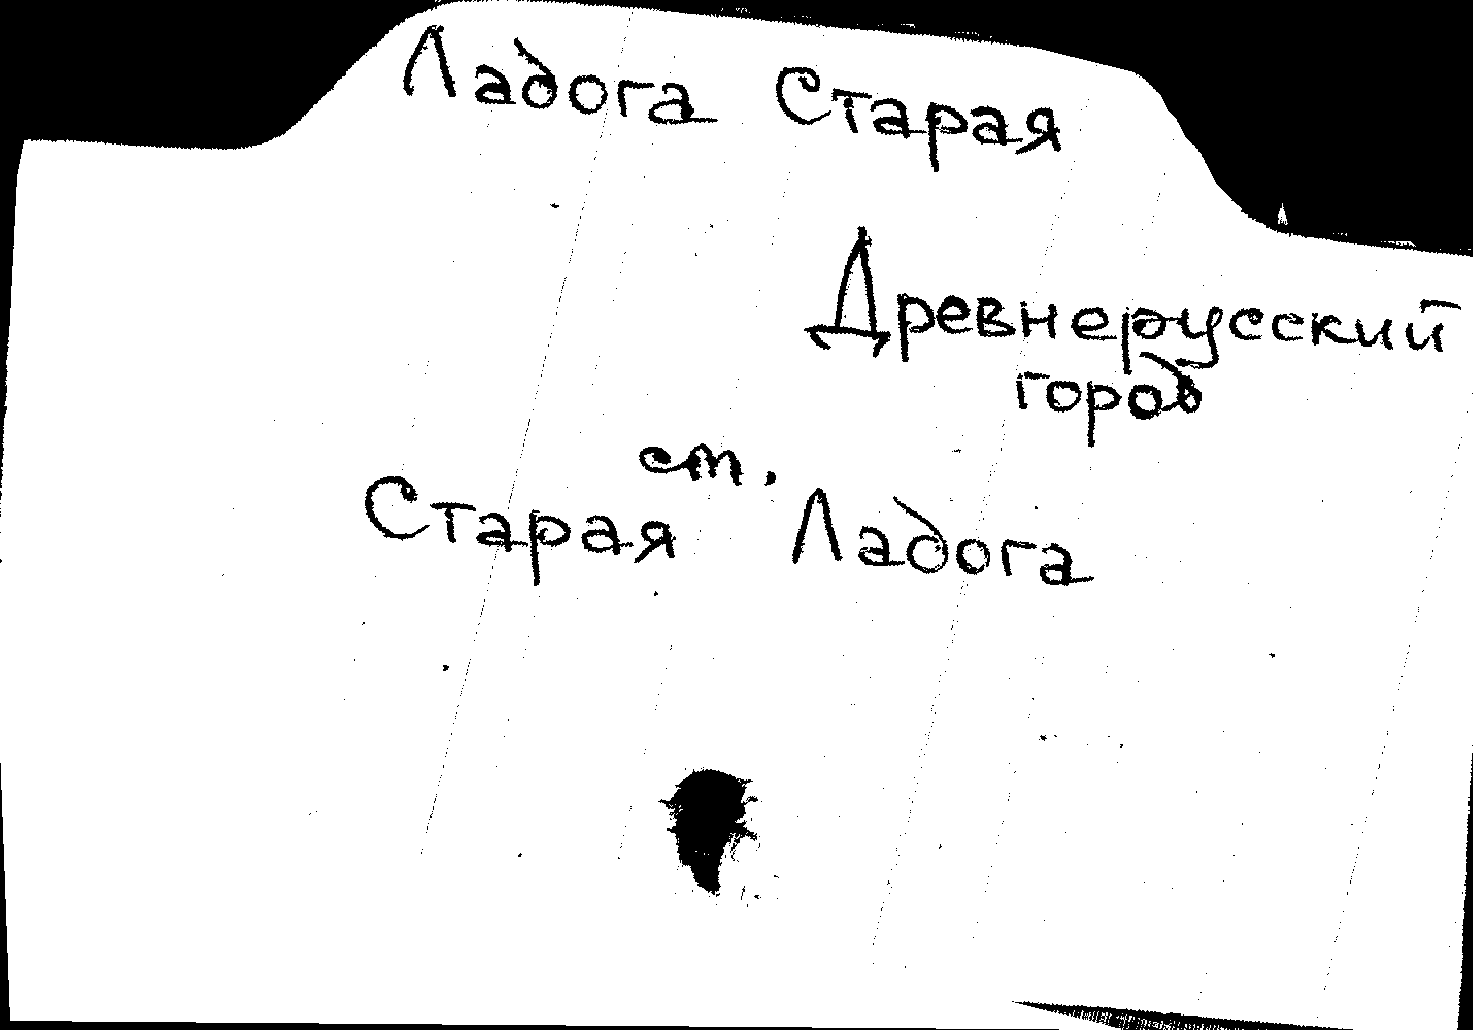 Ладога Старая
Древнерусский
город
см.
Старая Ладога